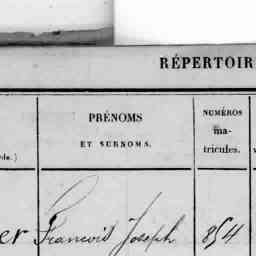 RÉPERTOIR
PRÉNOMS
ET SURNOMS.
NUMÉROS
ma-
tricules.
er Francois Joseph 854